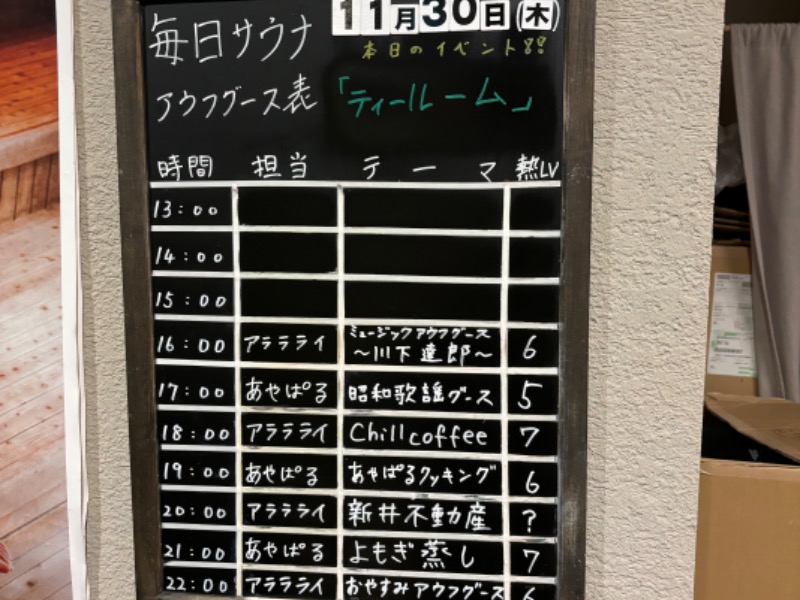 毎日サウナ 11月30日(木)
本日のイベント!!
アウフグース表 「ティールーム」
時間 担当 テーマ 熱LV
13:00
14:00
15:00
16:00 アラララライ ミュージックアウフグース ～川下達郎～ 6
17:00 あやぱる 昭和歌謡グース 5
18:00 アララライ Chillcoffee 7
19:00 あせぱる あやぱるクッキング 6
20:00 アララライ 新井不動産 ?
21:00 あやぱる よもぎ蒸し 7
22:00 アララライ おやすみアウフグース 6